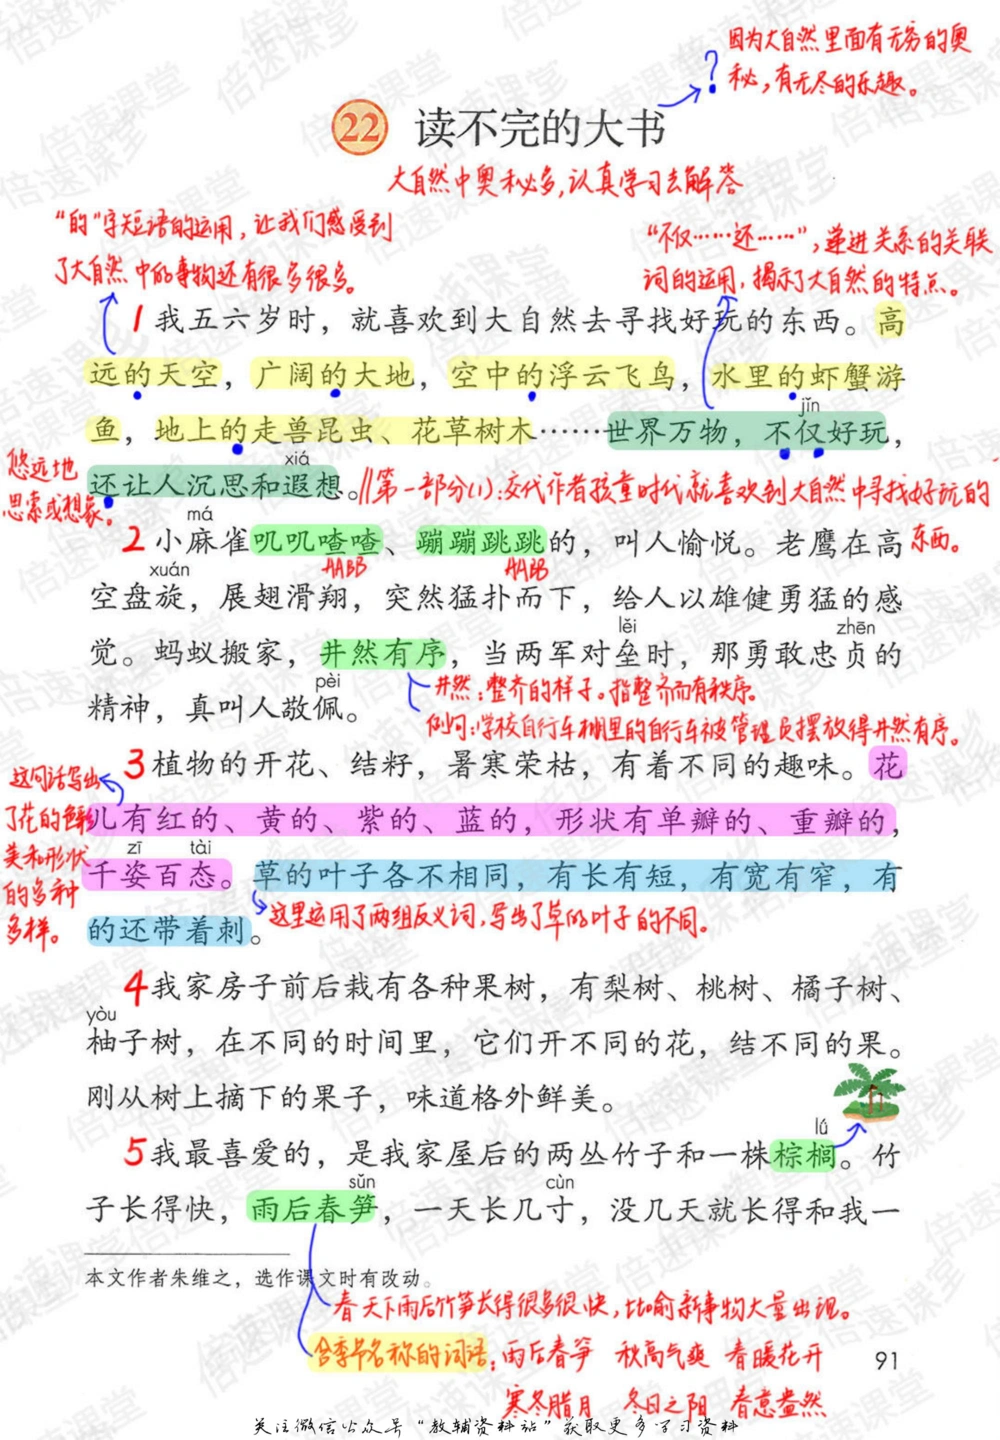 因为大自然里面有无穷的奥
秘，有无尽的乐趣。
?
22 读不完的大书
大自然中奥秘多，认真学习去解答
“的”字短语的运用，让我们感受到
了大自然中的事物还有很多很多。
“不仅……还……”，递进关系的关联
词的运用，揭示了大自然的特点。
1 我五六岁时，就喜欢到大自然去寻找好玩的东西。高
远的天空，广阔的大地，空中的浮云飞鸟，水里的虾蟹游
jǐn
鱼，地上的走兽昆虫、花草树木……世界万物，不仅好玩，
xiá
还让人沉思和遐想。
悠远地
思索或想象。
//第一部分(1)：交代作者孩童时代就喜欢到大自然中寻找好玩的
东西。
má
2 小麻雀叽叽喳喳、蹦蹦跳跳的，叫人愉悦。老鹰在高
AABB AABB
xuán
空盘旋，展翅滑翔，突然猛扑而下，给人以雄健勇猛的感
lěi zhēn
觉。蚂蚁搬家，井然有序，当两军对垒时，那勇敢忠贞的
pèi
精神，真叫人敬佩。
井然：整齐的样子。指整齐而有秩序。
例句：学校自行车棚里的自行车被管理员摆放得井然有序。
3 植物的开花、结籽，暑寒荣枯，有着不同的趣味。花
儿有红的、黄的、紫的、蓝的，形状有单瓣的、重瓣的，
zī tài
千姿百态。草的叶子各不相同，有长有短，有宽有窄，有
的还带着刺。
这句话写出
了花的色彩
美和形状
的多种
多样。
这里运用了两组反义词，写出了草的叶子的不同。
4 我家房子前后栽有各种果树，有梨树、桃树、橘子树、
yòu
柚子树，在不同的时间里，它们开不同的花，结不同的果。
刚从树上摘下的果子，味道格外鲜美。
lǘ
5 我最喜爱的，是我家屋后的两丛竹子和一株棕榈。竹
sǔn cùn
子长得快，雨后春笋，一天长几寸，没几天就长得和我一
本文作者朱维之，选作课文时有改动。
春天下雨后竹笋长得很多很快，比喻新事物大量出现。
含季节名称的词语：雨后春笋 秋高气爽 春暖花开
寒冬腊月 冬日之阳 春意盎然
91
关注微信公众号“教辅资料站”获取更多学习资料
倍速课堂